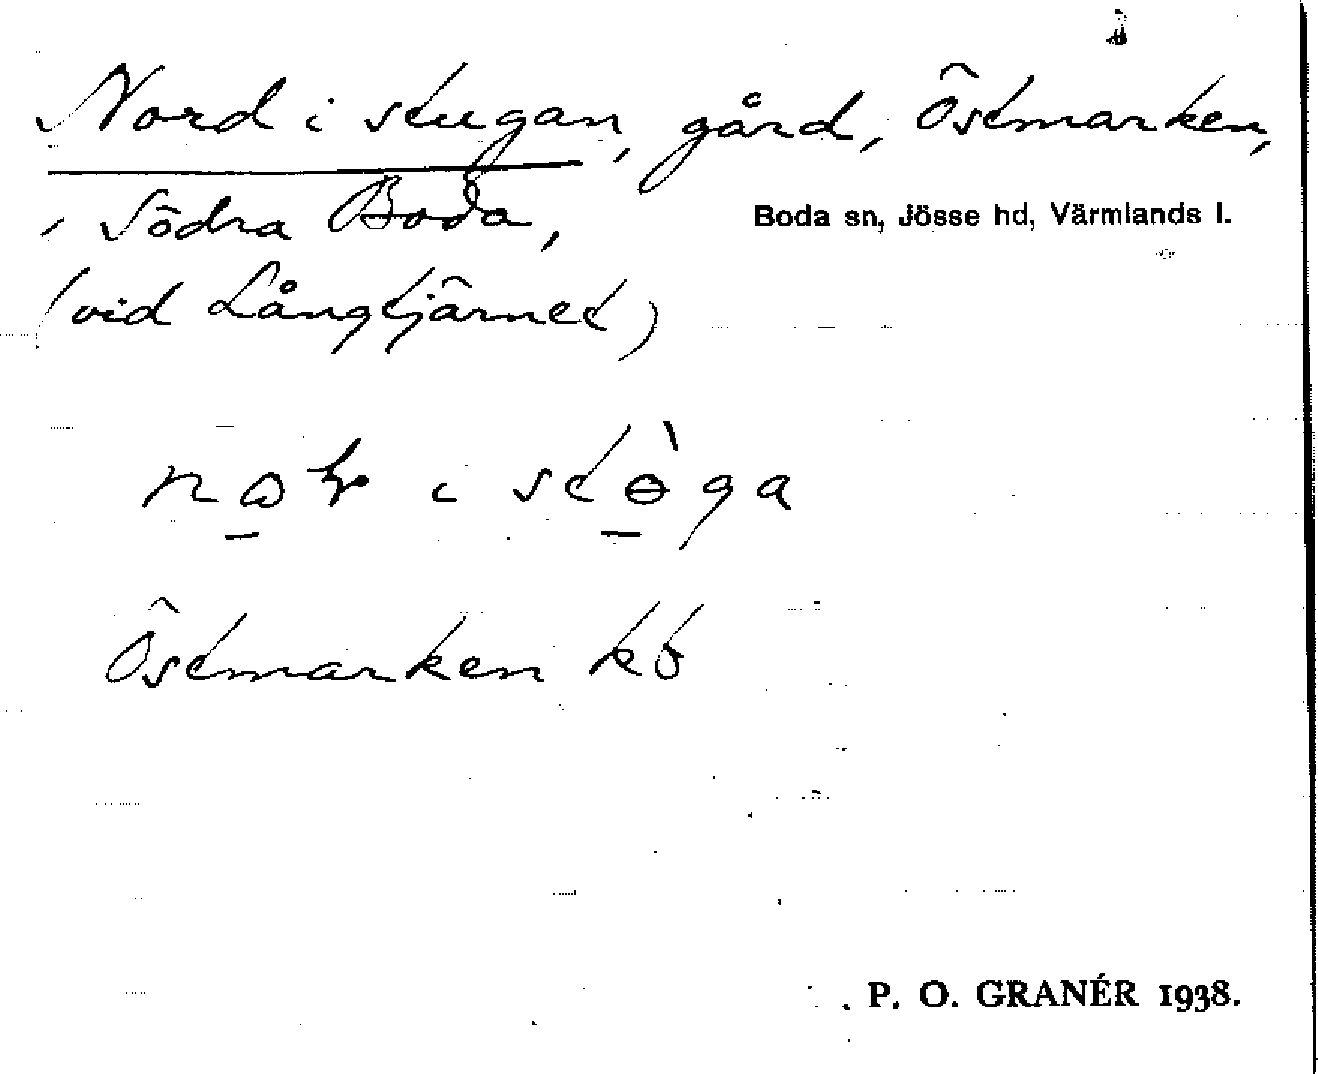 Nord i stugan, gård, Östmarken,
, Södra Boda,
Boda sn, Jösse hd, Värmlands l.
(vid Långtjärnet)
i stɵ̀ga
Östmarken kb
P. O. GRANÉR 1938.